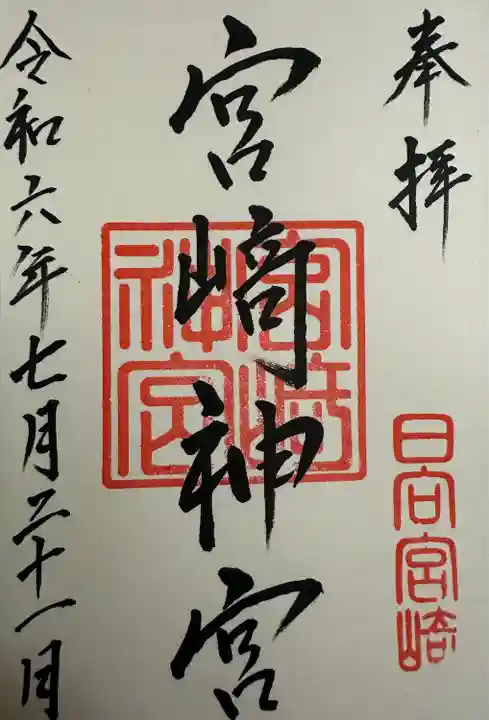 奉拝
日向宮崎
宮﨑神宮
宮崎神宮
令和六年七月二十一日